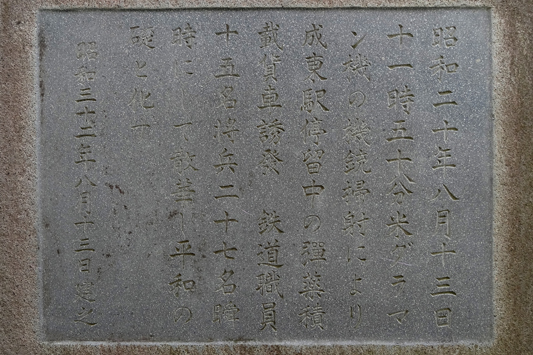 昭和二十年八月十三日
十一時五十分米グラマ
ン機の機銃掃射により
成東駅停留中の弾薬積
載貨車誘発 鉄道職員
十五名将兵二十七名瞬
時にして散華し平和の
礎と化す
昭和三十二年八月十三日建之